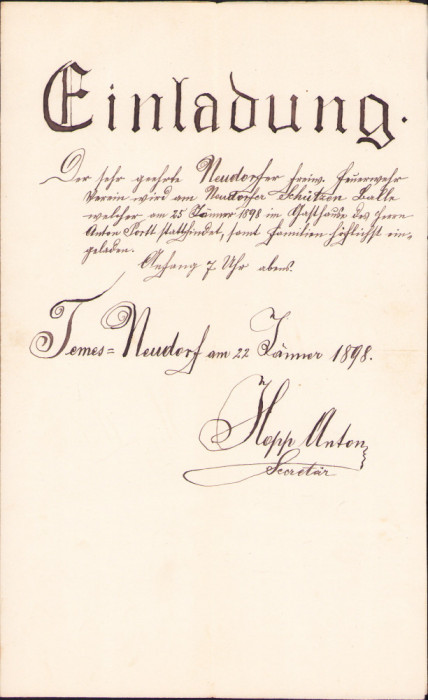 Einladung.
Der sehr geehrte Neudorfer freiw. Feuerwehr
Verein wird am Neudorfer Schützen Balle
welcher am 25 Jänner 1898 im Gasthause des Herrn
Anton stattfindet, samt Familien höflichst ein=
geladen.
Anfang 7 Uhr abens.
Temes=Neudorf am 22 Jänner 1898.
Hopp Anton
Secretär